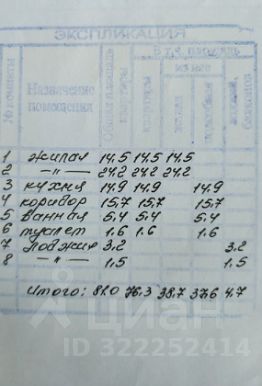 ЭКСПЛИКАЦИЯ
№ комнаты
Назначение помещения
Общая площадь квартиры
В т.ч. площадь
квартиры
из нее
жилая
подсобная
лоджий, балконов
1 жилая 14.5 14.5 14.5
2 —"— 24.2 24.2 24.2
3 кухня 14.9 14.9 14.9
4 коридор 15.7 15.7 15.7
5 ванная 5.4 5.4 5.4
6 туалет 1.6 1.6 1.6
7 лоджия 3.2 3.2
8 —"— 1.5 1.5
Итого: 81.0 76.3 38.7 37.6 4.7
циан
ID 322252414